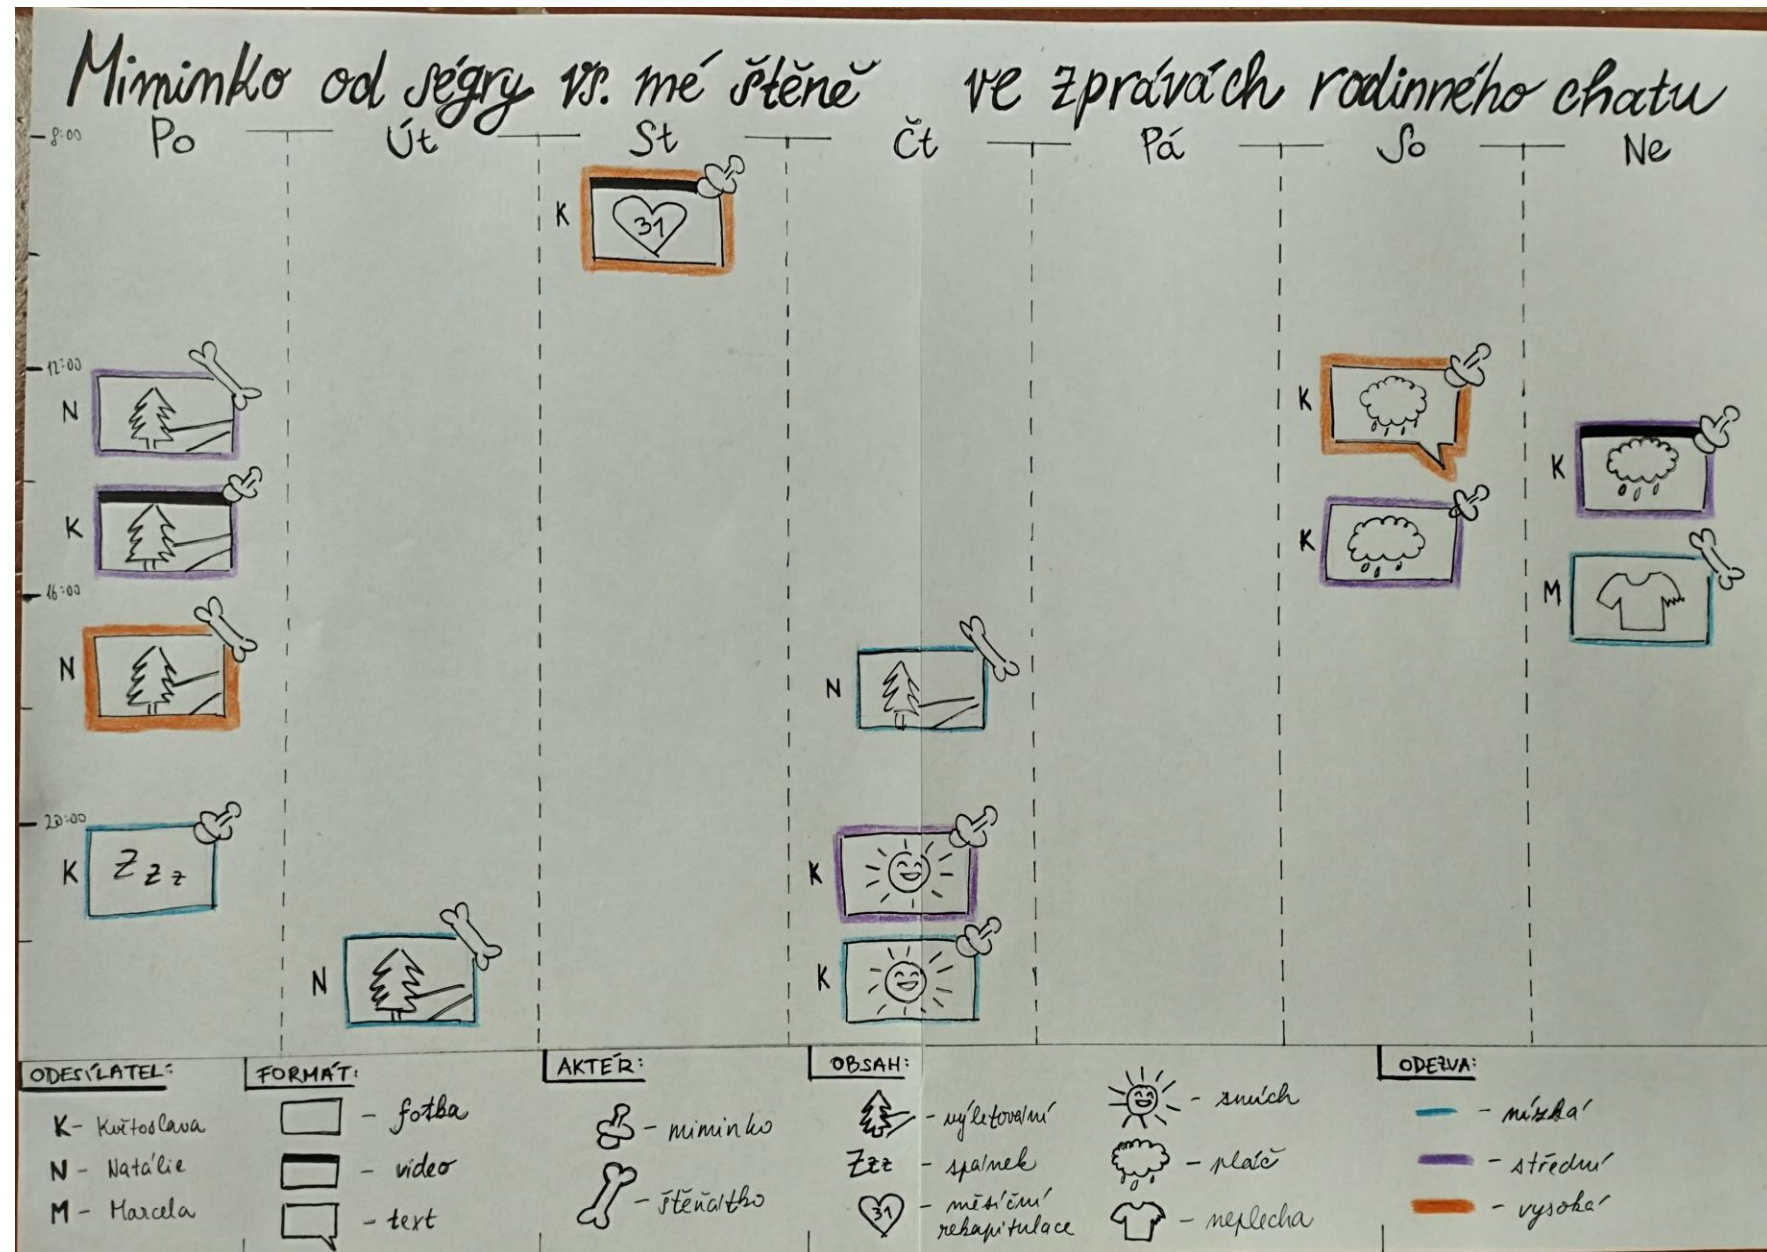 Miminko od ségry vs. mé štěně ve zprávách rodinného chatu
Po Út St Čt Pá So Ne
8:00
K
31
12:00
N
K
K
K
K
16:00
N
N
M
20:00
K
Z z z
K
N
K
ODESÍLATEL:
K - Květoslava
N - Natálie
M - Marcela
FORMÁT:
- fotka
- video
- text
AKTÉR:
- miminko
- štěňátko
OBSAH:
- výletování
Zzz - spánek
31 - měsíční
rekapitulace
- smích
- pláč
- neplecha
ODEZVA:
- nízká
- střední
- vysoká